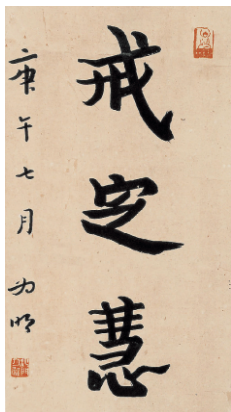 戒定慧
庚午七月
为明